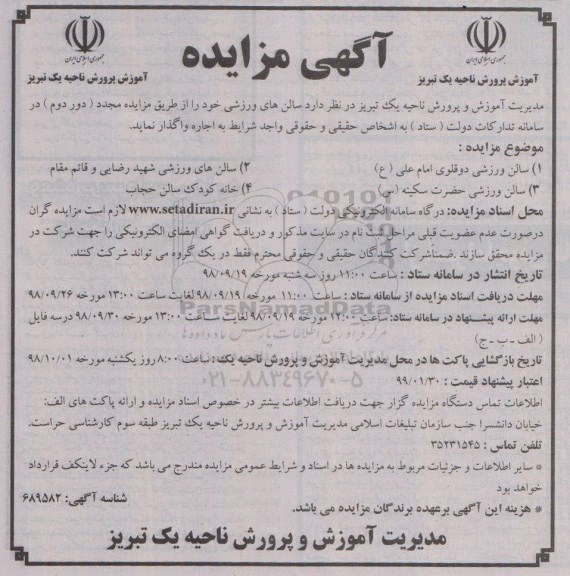 جمهوری اسلامی ایران
آموزش پرورش ناحیه یک تبریز
آگهی مزایده
جمهوری اسلامی ایران
آموزش پرورش ناحیه یک تبریز
مدیریت آموزش و پرورش ناحیه یک تبریز در نظر دارد سالن های ورزشی خود را از طریق مزایده مجدد ( دور دوم ) در
سامانه تدارکات دولت ( ستاد ) به اشخاص حقیقی و حقوقی واجد شرایط به اجاره واگذار نماید.
موضوع مزایده :
۱) سالن ورزشی دوقلوی امام علی ( ع )
۲) سالن های ورزشی شهید رضایی و قائم مقام
۳) سالن ورزشی حضرت سکینه (س)
۴) خانه کودک سالن حجاب
محل اسناد مزایده: درگاه سامانه الکترونیکی دولت ( ستاد ) به نشانی www.setadiran.ir لازم است مزایده گران
درصورت عدم عضویت قبلی مراحل ثبت نام در سایت مذکور و دریافت گواهی امضای الکترونیکی را جهت شرکت در
مزایده محقق سازند .ضمناشرکت کنندگان حقیقی و حقوقی محترم فقط در یک گروه می تواند شرکت کنند.
تاریخ انتشار در سامانه ستاد : ساعت ۱۱:۰۰ روز سه شنبه مورخه ۹۸/۰۹/۱۹
مهلت دریافت اسناد مزایده از سامانه ستاد : ساعت ۱۱:۰۰ مورخه ۹۸/۰۹/۱۹ لغایت ساعت ۱۳:۰۰ مورخه ۹۸/۰۹/۲۶
مهلت ارائه پیشنهاد در سامانه ستاد: ساعت ۱۲:۰۰ مورخه ۹۸/۰۹/۱۹ لغایت ساعت ۱۳:۰۰ مورخه ۹۸/۰۹/۳۰ درسه فایل
( الف - ب - ج)
تاریخ بازگشایی پاکت ها در محل مدیریت آموزش و پرورش ناحیه یک : ساعت ۸:۰۰ روز یکشنبه مورخه ۹۸/۱۰/۰۱
اعتبار پیشنهاد قیمت : ۹۹/۰۱/۳۰
اطلاعات تماس دستگاه مزایده گزار جهت دریافت اطلاعات بیشتر در خصوص اسناد مزایده و ارائه پاکت های الف:
خیابان دانشسرا جنب سازمان تبلیغات اسلامی مدیریت آموزش و پرورش ناحیه یک تبریز طبقه سوم کارشناسی حراست.
تلفن تماس : ۳۵۲۳۱۵۴۵
* سایر اطلاعات و جزئیات مربوط به مزایده ها در اسناد و شرایط عمومی مزایده مندرج می باشد که جزء لاینکف قرارداد
خواهد بود
* هزینه این آگهی برعهده برندگان مزایده می باشد.
شناسه آگهی: ۶۸۹۵۸۲
مدیریت آموزش و پرورش ناحیه یک تبریز
ParsNamadData
۰۲۱-۸۸۳۴۹۶۷۰-۵